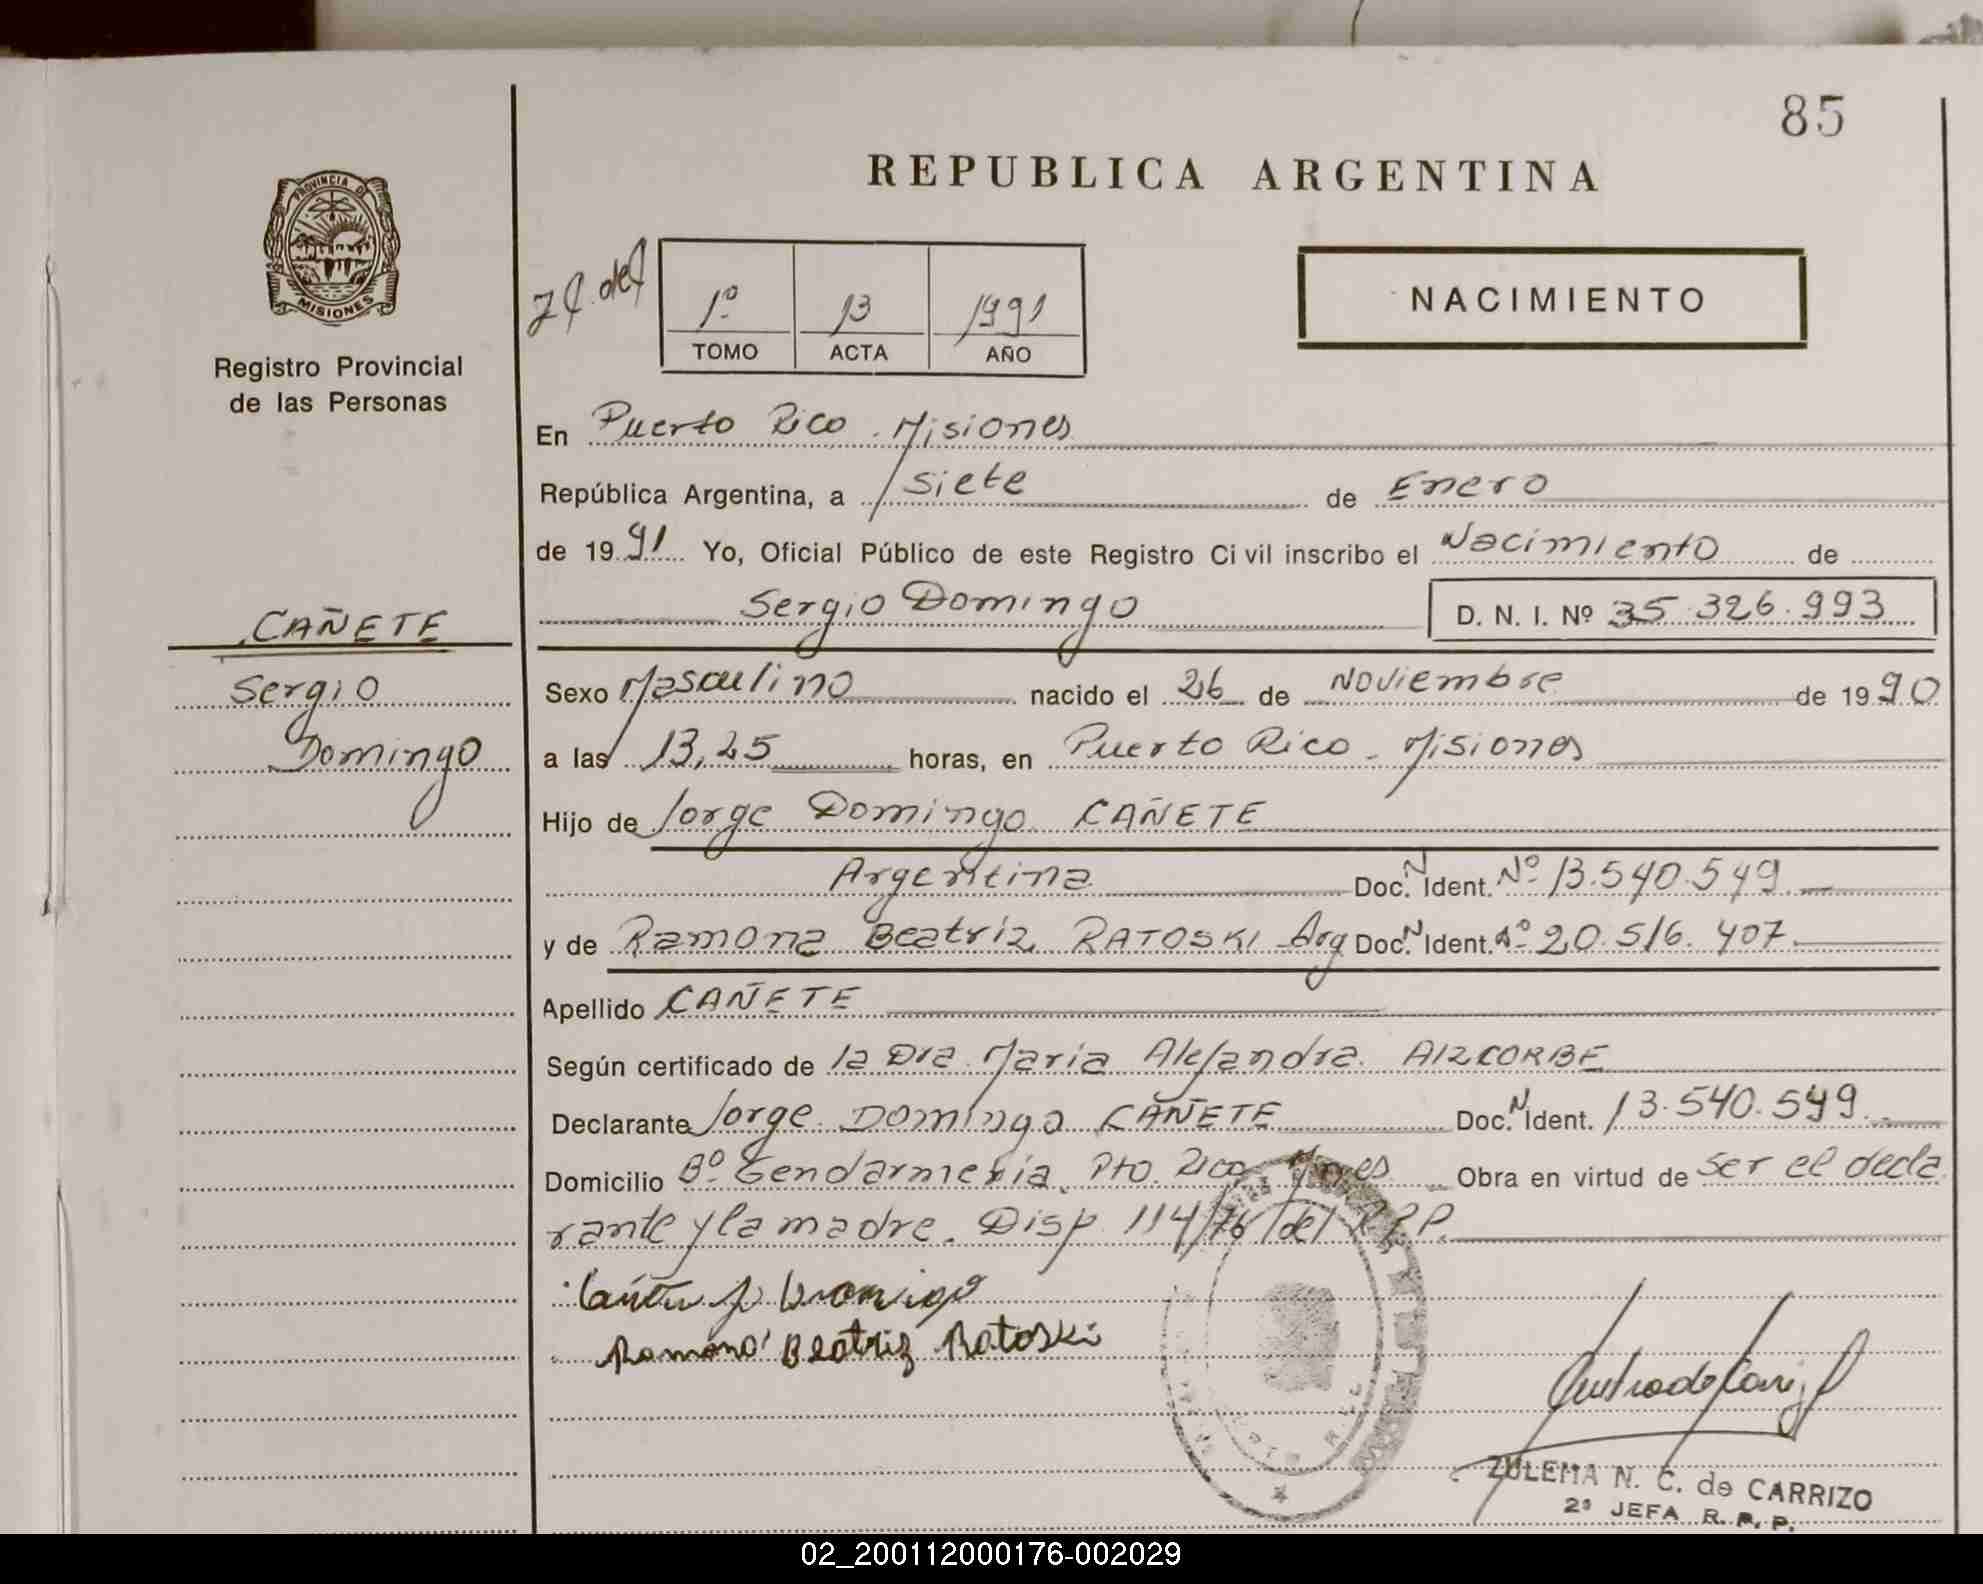 85
REPUBLICA ARGENTINA
PROVINCIA DE
MISIONES
Registro Provincial
de las Personas
1º 13 1991
TOMO ACTA AÑO
NACIMIENTO
En Puerto Rico. Misiones
República Argentina, a siete de Enero
de 1991 Yo, Oficial Público de este Registro Civil inscribo el Nacimiento de
Sergio Domingo D. N. I. Nº 35.326.993
CAÑETE
Sergio
Domingo
Sexo Masculino nacido el 26 de Noviembre de 1990
a las 13,25 horas, en Puerto Rico - Misiones
Hijo de Jorge Domingo CAÑETE
Argentina Doc. N Ident. Nº 13.540.549
y de Ramona Beatriz RATOSKI Arg Doc. N Ident. Nº 20.516.407
Apellido CAÑETE
Según certificado de la Dra. Maria Alejandra AIZCORBE
Declarante Jorge Domingo CAÑETE Doc. N Ident. 13.540.549
Domicilio Bº Gendarmeria. Pto. Rico Mnes Obra en virtud de ser el decla
rante y la madre. Disp 114/76 del R.P.P.
Ramona Beatriz Ratoski
ZULEMA N. C. de CARRIZO
2ª JEFA R. P. P.
02_200112000176-002029